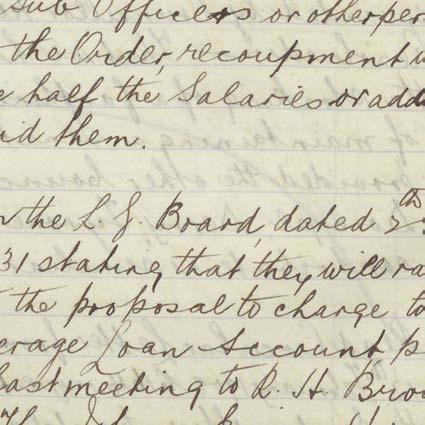 Sub Officers or other per
the Order, recoupment
half the Salaries or add
them.
the L. G. Board, dated
31 stating that they will ra
the proposal to charge to
erage Loan Account p
last meeting to R. H. Bro